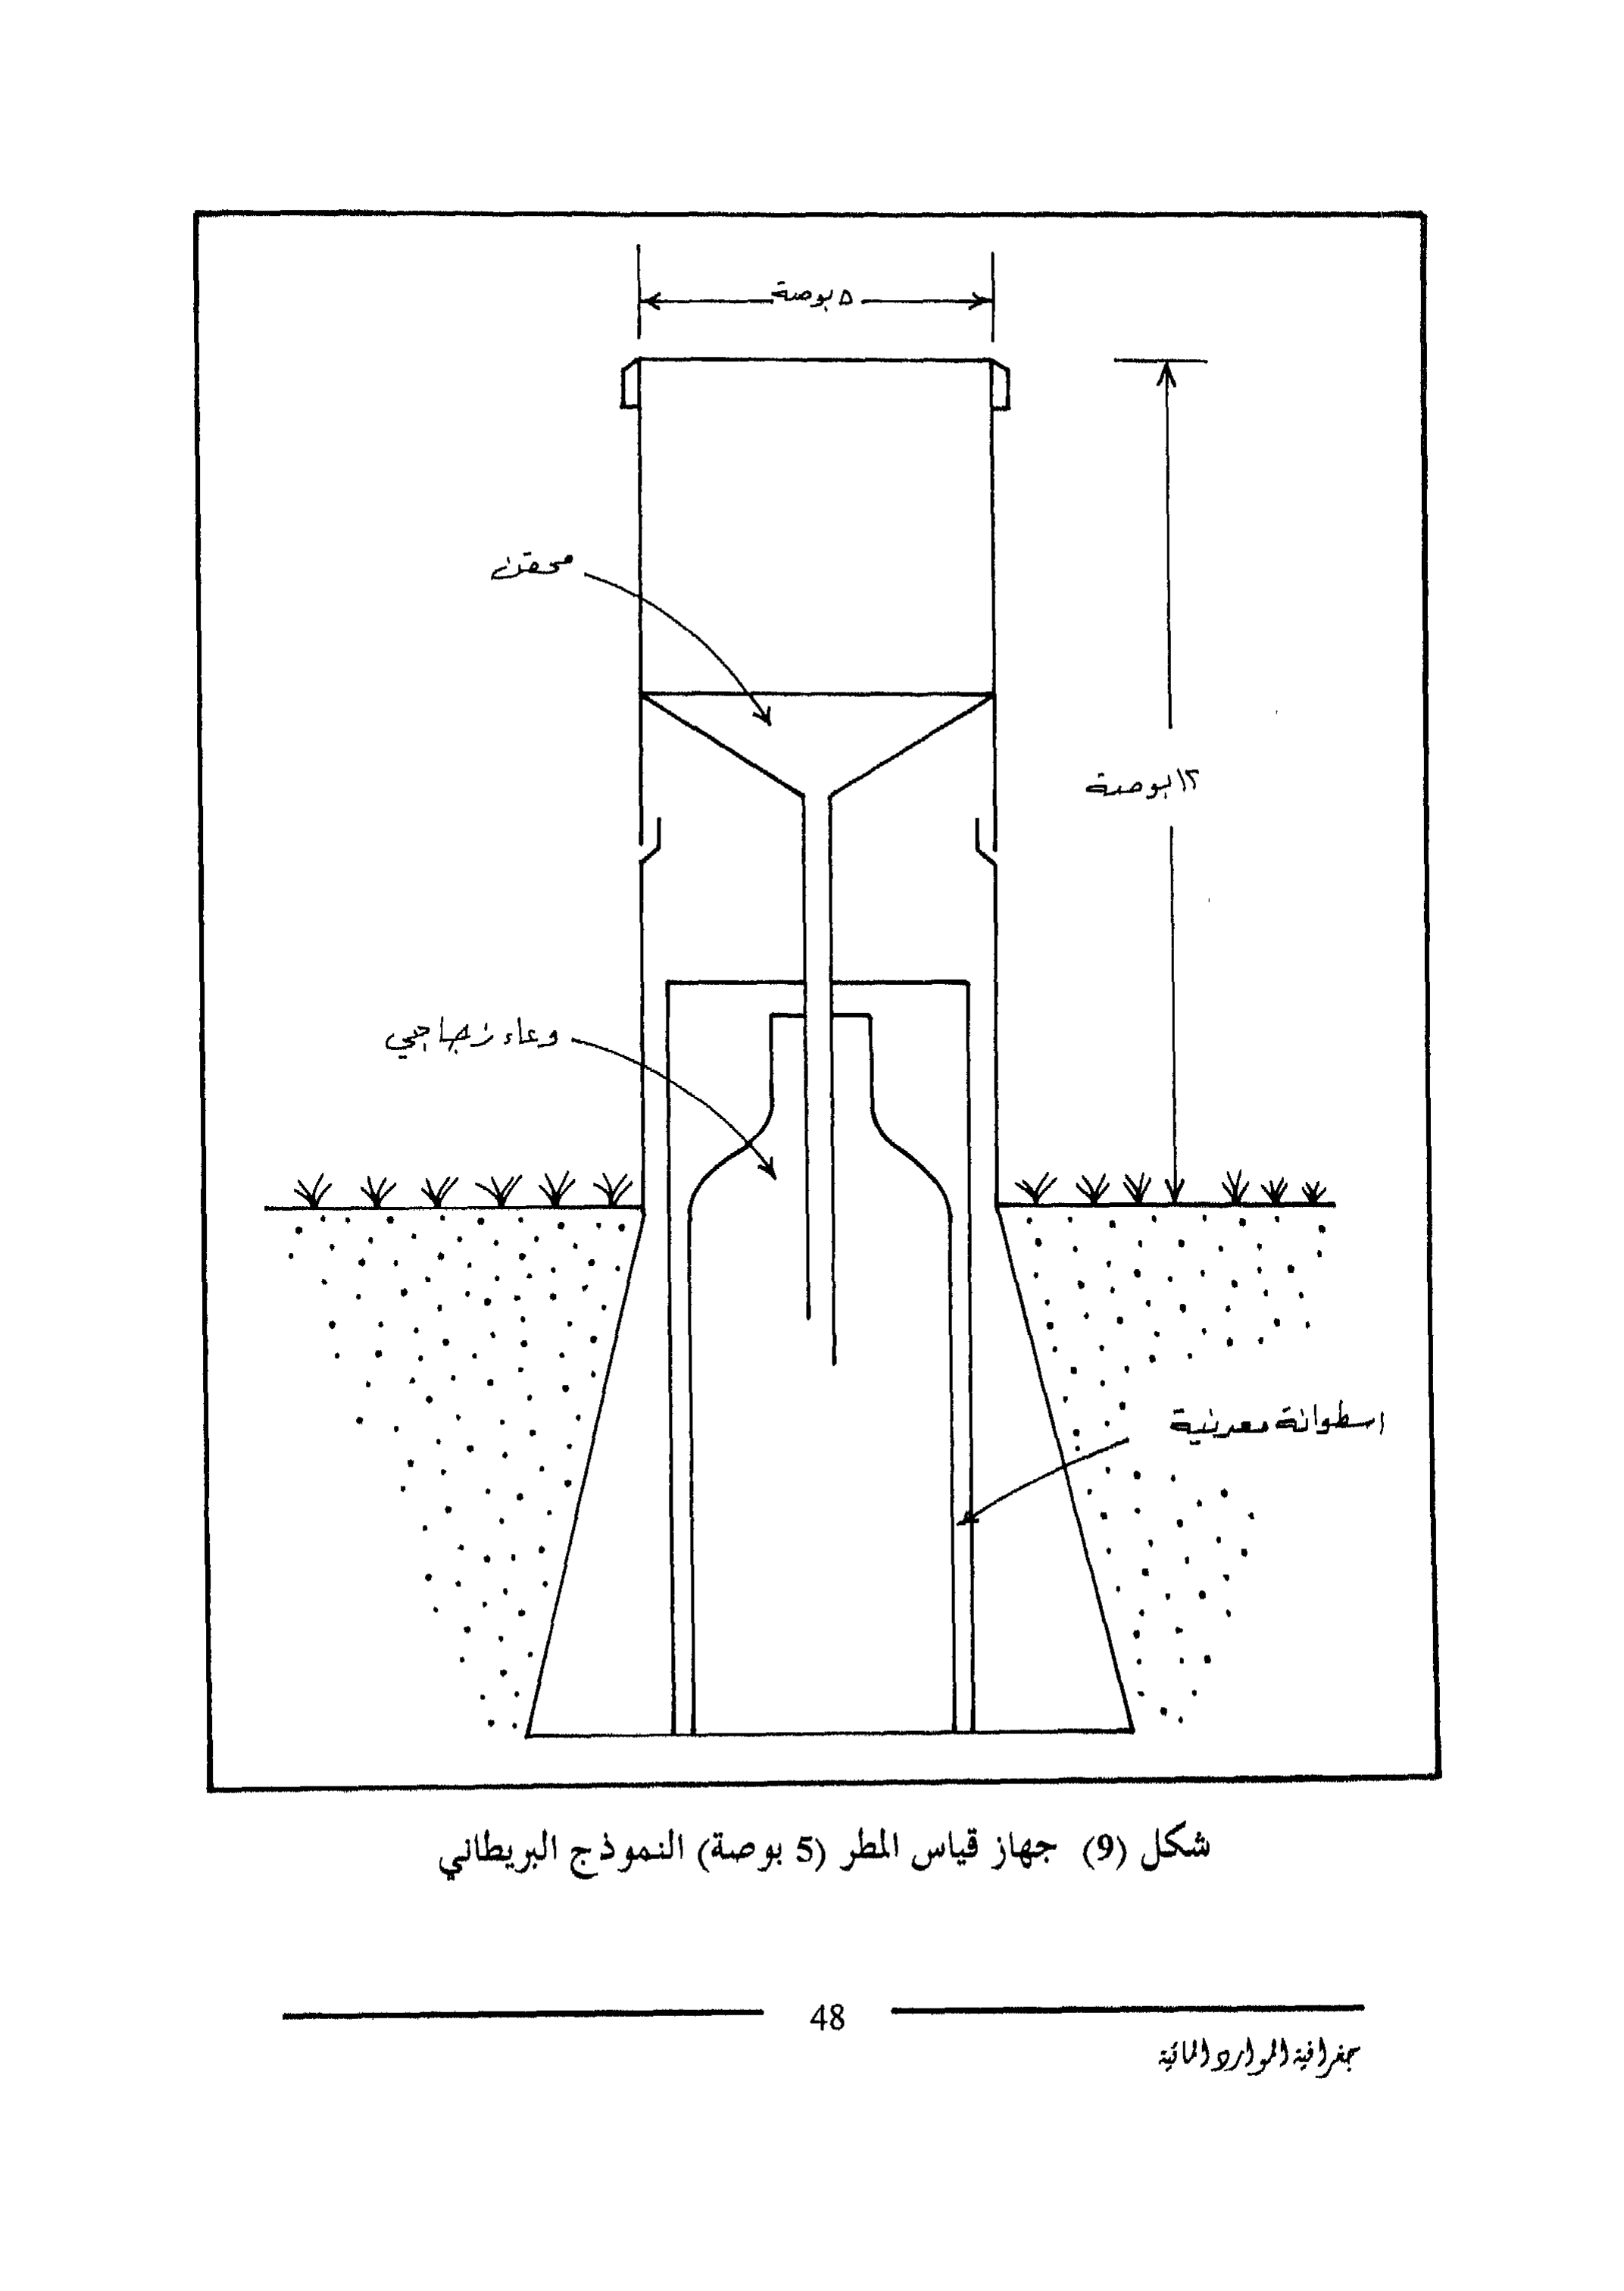 ٥ بوصة
محقن
١٢ بوصة
وعاء زجاجي
اسطوانة معدنية
شكل (9) جهاز قياس المطر (5 بوصة) النموذج البريطاني
48
جغرافية الموارد المائية